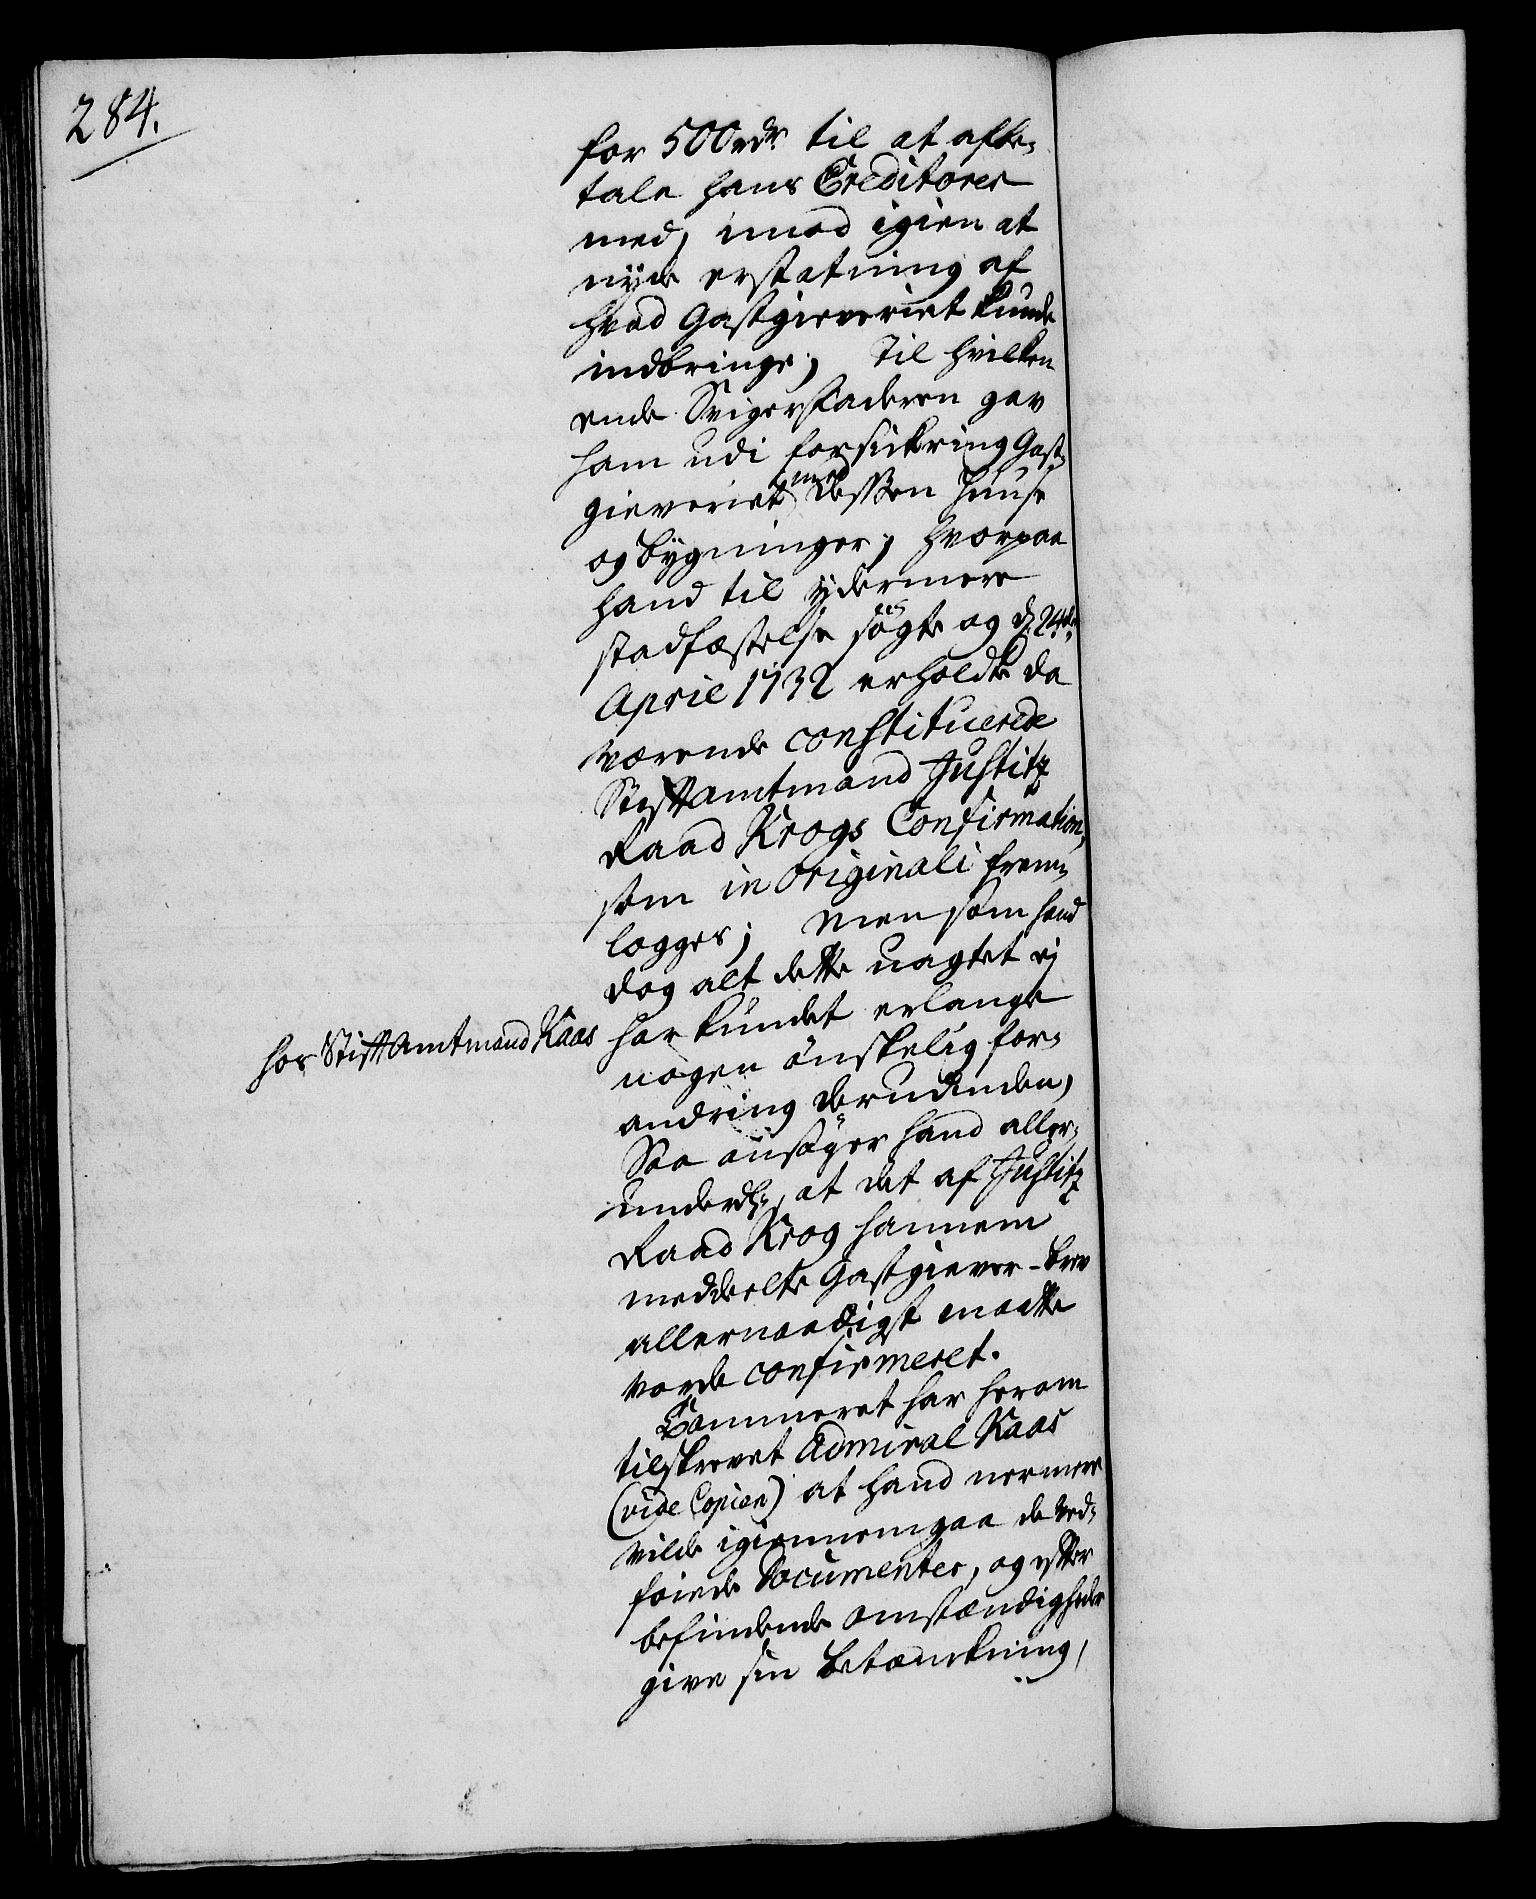 284.
for 500 rdr. til at afbe-
tale hans Creditores
med, imod igien at
nyde erstatning af
hvad Gastgieveriet kunde
indbringe; Til hvilken
ende Svigerfaderen gav
ham udi forsickring Gast-
gieveriet med dessen Huuse
og bygninger; hvorpaa
hand til ydermere
stadfæstelse søgte og d. 24de
April 1732 erholdte da
værende constituerede
Stiftamtmand Justitz
Raad Krogs Confirmation,
som in originali frem-
legges; men som hand
dog alt dette uagtet ej
har kundet erlange
hos Stiftamtmand Kaas
nogen ønskelig for-
andring derudinden,
Saa ansøger hand aller-
underd:, at det af Justitz
Raad Krog hannem
meddeelte Gastgiever-brev
allernaadigst maatte
vorde confirmeret.
Cammeret har herom
tilskrevet Admiral Kaas
(vide Copien) at hand nermere
vilde igiennemgaa de ved-
føiede Documenter, og efter
befindende omstændigheder
give sin betænkning,